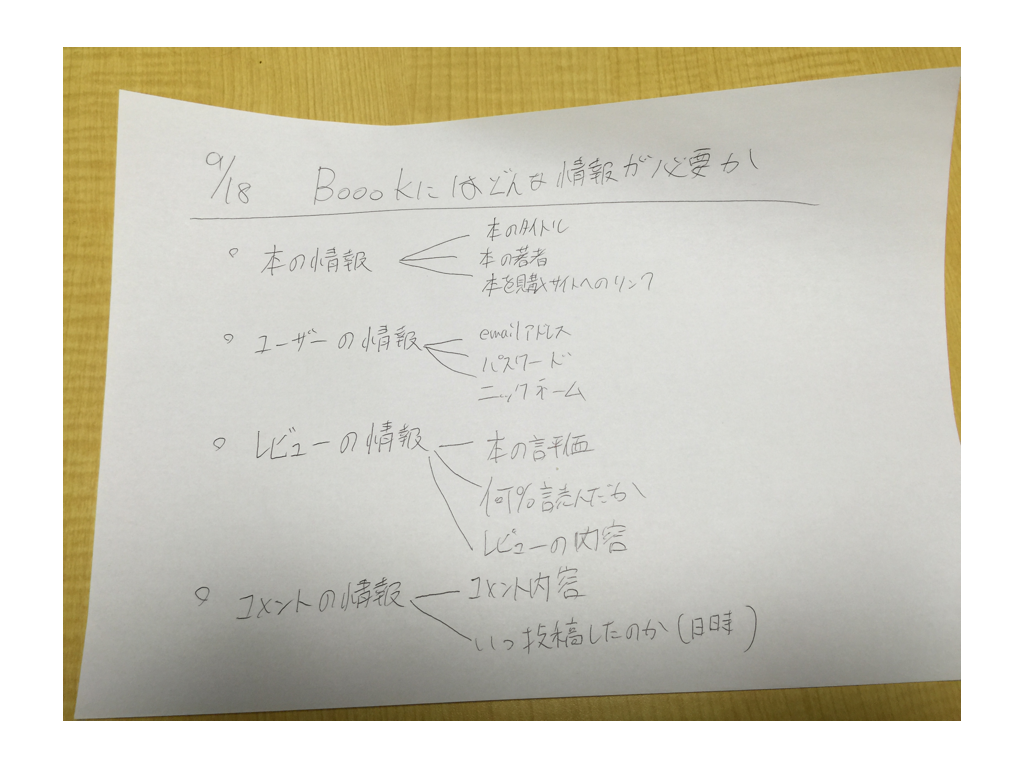 9/18 Boookにはどんな情報が必要か
○ 本の情報
本のタイトル
本の著者
本を購入サイトへのリンク
○ ユーザーの情報
emailアドレス
パスワード
ニックネーム
○ レビューの情報
本の評価
何%読んだか
レビューの内容
○ コメントの情報
コメント内容
いつ投稿したのか(日時)